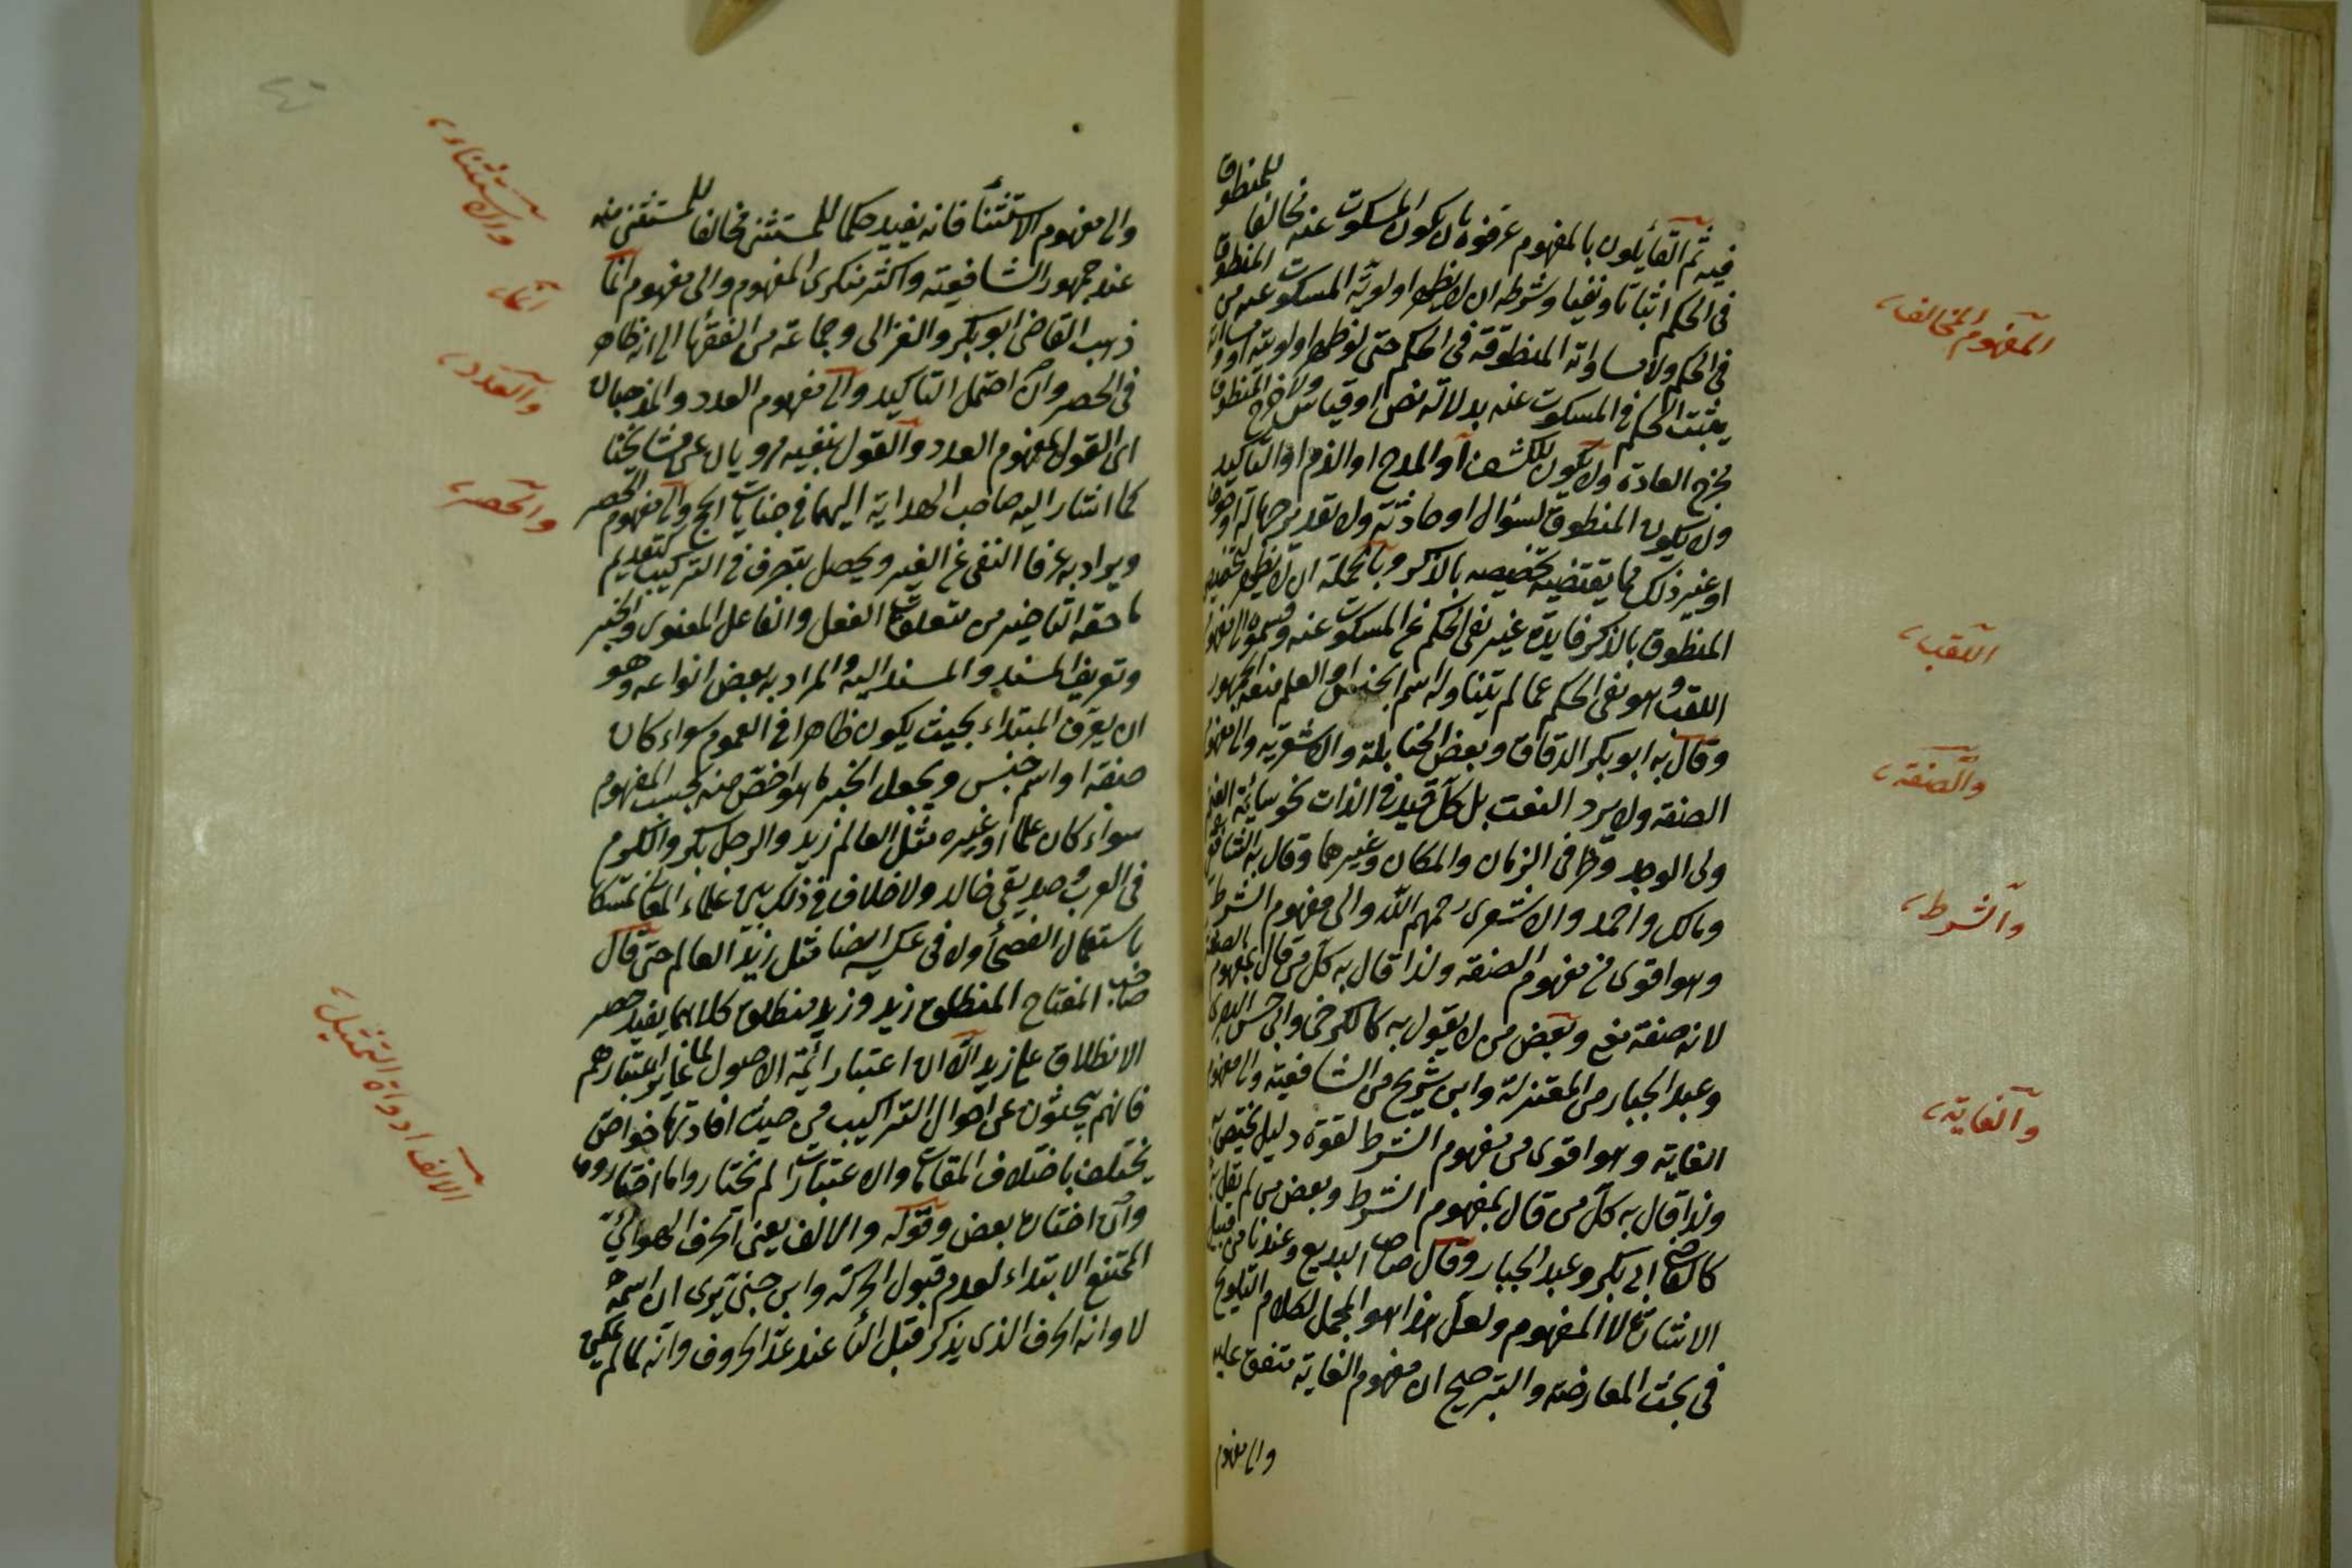 فيه ثم القائلون بالمفهوم عرفوه بان يكون المسكوت عنه مخالفا للمنطوق
في الحكم اثباتا ونفيا وشرطه ان لا يظهر اولوية المسكوت عنه من المنطوق
في الحكم ولا مساواته المنطوقة في الحكم حتى لو ظهر اولويته او مساواته
يثبت الحكم في المسكوت عنه بدلالة نص او قياس ولا خرج المنطوق
مخرج العادة ولا يكون للكشف او المدح او الذم او التأكيد
ولا يكون المنطوق لسؤال او حادثة ولا تقدير جهالة او خوف
او غير ذلك مما يقتضيه تخصيصه بالذكر وبالجملة ان لا يظهر لتخصيص
المنطوق بالذكر فايدة غير نفي الحكم عن المسكوت عنه وقسموه الى مفهوم
اللقب وهو نفي الحكم عما لم يتناوله اسم الجنس او العلم منعه الجمهور
وقال به ابو بكر الدقاق وبعض الحنابلة والاشعرية والى مفهوم
الصفة ولا يرد النعت بل كل قيد في الذات نحو سائمة الغنم
ولي الواجد وظرفى الزمان والمكان وغيرهما وقال به الشافعي
ومالك واحمد والاشعرى رحمهم الله والى مفهوم الشرط
وهو اقوى من مفهوم الصفة ولذا قال به كل من قال بمفهوم الصفة
لانه صفة مع وبعض من لا يقول به كالكرخي وابي حسن البصرى
وعبد الجبار من المعتزلة وابن شريح من الشافعية والى مفهوم
الغاية وهو اقوى من مفهوم الشرط لقوة دليل يختص به
ولذا قال به كل من قال بمفهوم الشرط وبعض من لم يقل به
كالقاضي ابي بكر وعبد الجبار وقال صاحب البديع وعندنا من قبيل
الاشارة لا المفهوم ولعل هذا هو المحمل لكلام التلويح
في بحث المعارضة والترجيح ان مفهوم الغاية متفق عليه
والى مفهوم
المفهوم المخالف
اللقب
والصفة
والشرط
والغاية
والى مفهوم الاستثناء فانه يفيد حكما للمستثنى مخالفا للمستثنى منه
عند جمهور الشافعية واكثر منكرى المفهوم والى مفهوم انما
ذهب القاضي ابو بكر والغزالى وجماعة من الفقهاء الى انه ظاهر
في الحصر وان احتمل التأكيد والى مفهوم العدد والمذهبان
اى القول بمفهوم العدد والقول بنفيه مرويان عن مشايخنا
كما اشار اليه صاحب الهداية اليهما في جنايات الحج والى مفهوم الحصر
ويراد به عرفا النفى عن الغير ويحصل بتصرف في التركيب كتقديم
ما حقه التاخير من متعلقات الفعل والفاعل المعنوى والخبر
وتعريف المسند والمسند اليه والمراد به بعض انواعه وهو
ان يعرف المبتداء بحيث يكون ظاهرا في العموم سواء كان
صفة او اسم جنس ويجعل الخبر ما هو اخص منه بحسب المفهوم
سواء كان علما او غيره مثل العالم زيد والرجل بكر والكرم
في العرب وصديقي خالد ولا خلاف في ذلك بين علماء المعانى تمسكا
باستعمال الفصحاء ولا في عكسه ايضا مثل زيد العالم حتى قال
صاحب المفتاح المنطلق زيد وزيد منطلق كلاهما يفيد حصر
الانطلاق على زيد الا ان اعتبار ائمة الاصول لما غاير اعتبارهم
فانهم يبحثون عن احوال التراكيب من حيث افادتها خواص
يختلف باختلاف المقامات والاعتبارات لم يختاروا ما اختاروه
وان اختاره بعض وقوله والالف يعنى الحرف الهوائى
الممتنع الابتداء لعدم قبول الحركة وابن جنى يرى ان اسمه
لا وانه الحرف الذى يذكر قبل الياء عند عد الحروف وانه لما لم يمكن
والاستثناء
انما
والعدد
والحصر
الالف ادواة التمثيل